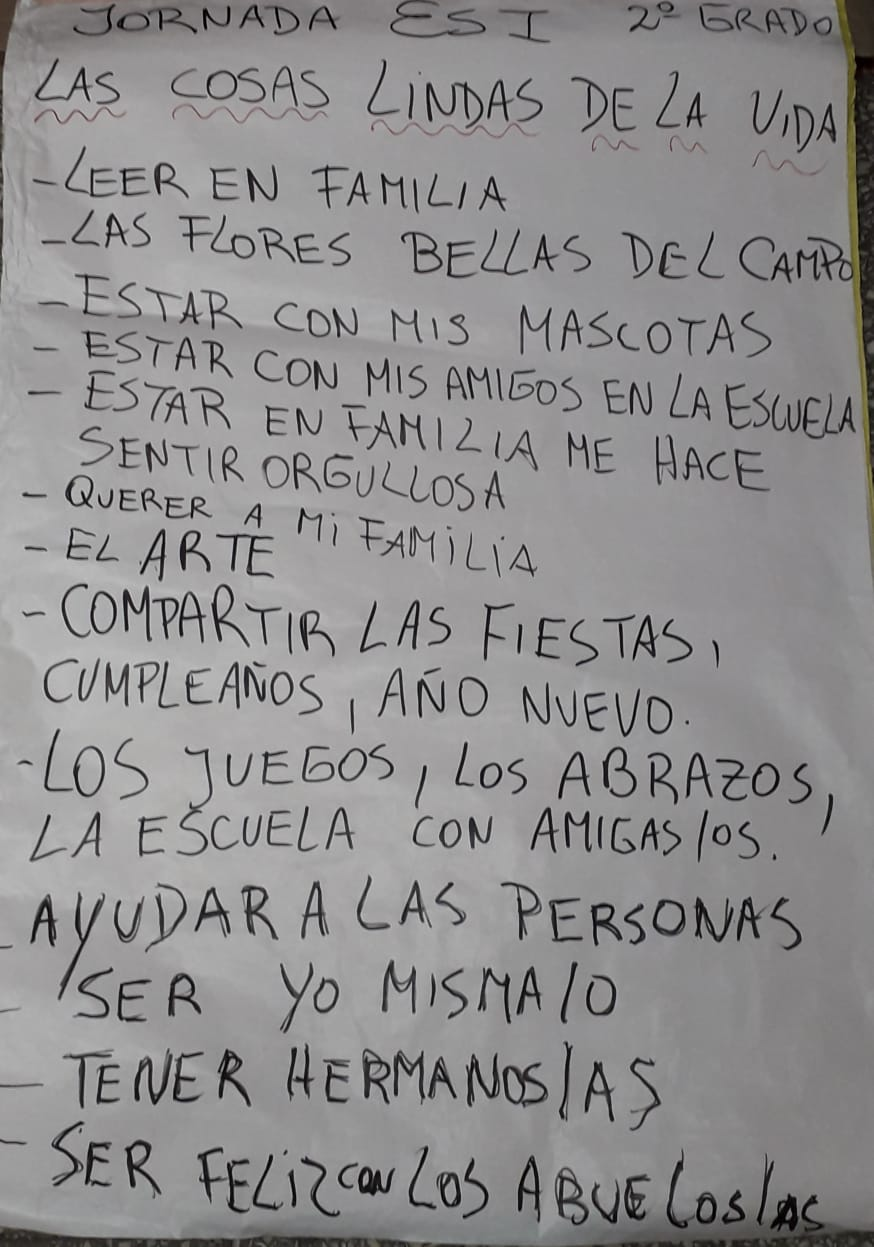 JORNADA ESI 2º GRADO
LAS COSAS LiNDAS DE LA ViDA
-LEER EN FAMILIA
-LAS FLORES BELLAS DEL CAMPO
-ESTAR CON MIS MASCOTAS
- ESTAR CON MIS AMIGOS EN LA ESCUELA
- ESTAR EN FAMILIA ME HACE
SENTIR ORGULLOSA
- QUERER A Mi FAMiLiA
- EL ARTE
- COMPARTIR LAS FIESTAS,
CUMPLEAÑOS, AÑO NUEVO.
-LOS JUEGOS, LOS ABRAZOS,
LA ESCUELA CON AMIGAS/OS.
- AYUDAR A LAS PERSONAS
- SER YO MISMA/O
- TENER HERMANOS/AS
- SER FELiZ CON LOS ABUELOS/AS